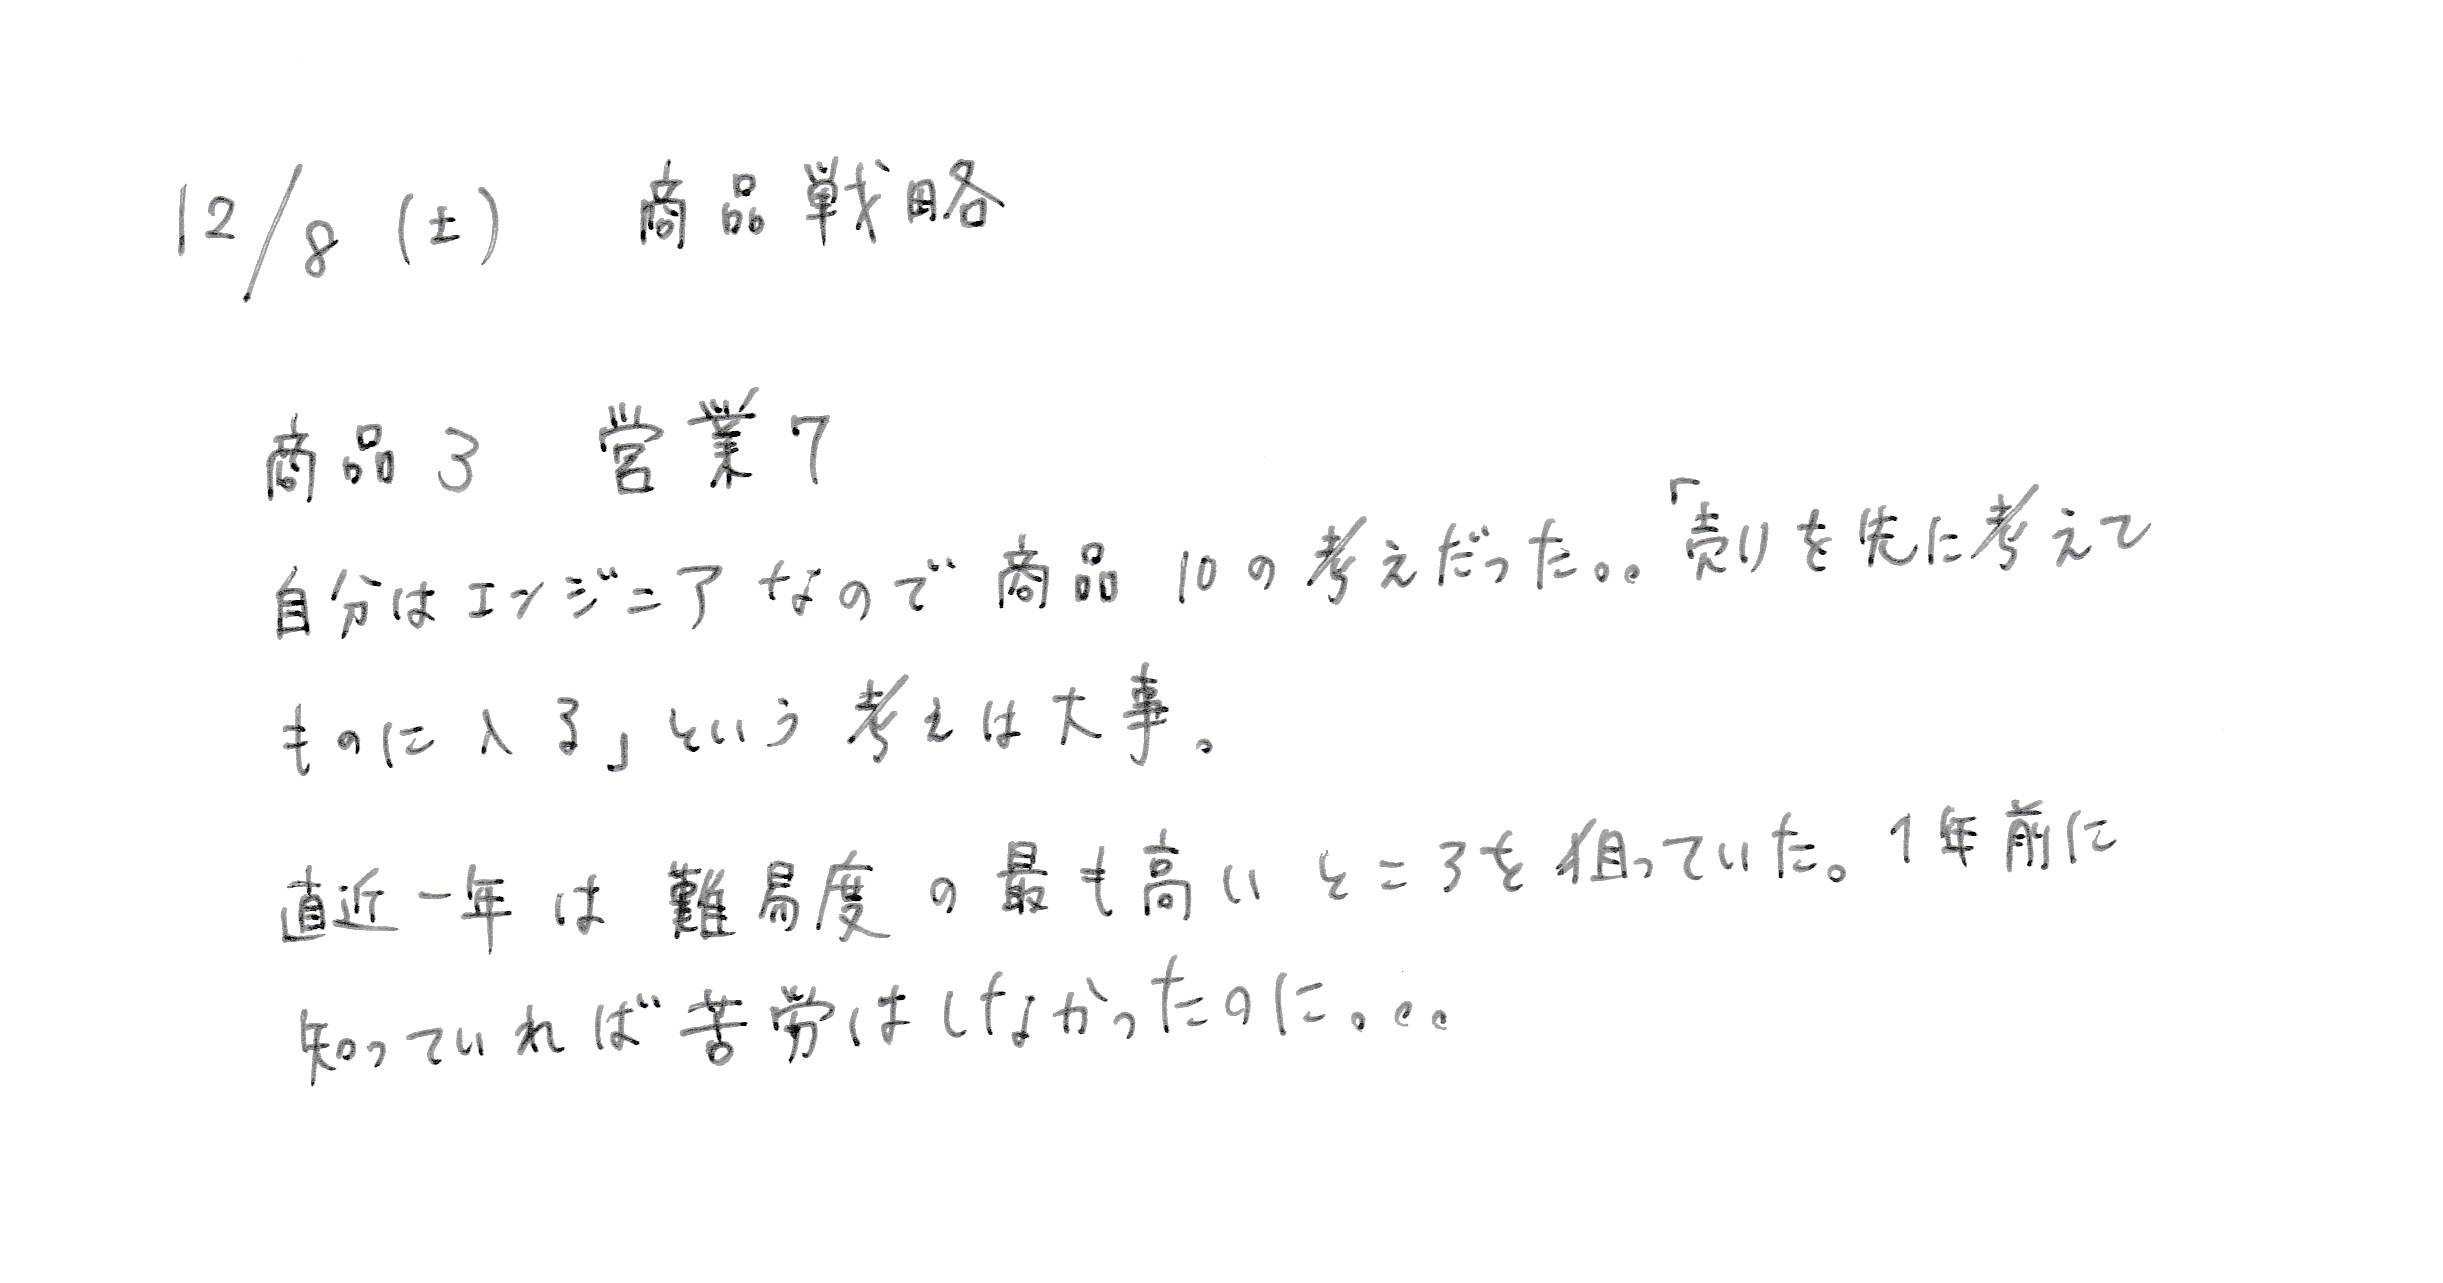 12/8 (土) 商品戦略
商品3 営業7
自分はエンジニアなので商品10の考えだった。。「売りを先に考えて
ものに入る」という考えは大事。
直近一年は難易度の最も高いところを狙っていた。1年前に
知っていれば苦労はしなかったのに。。。